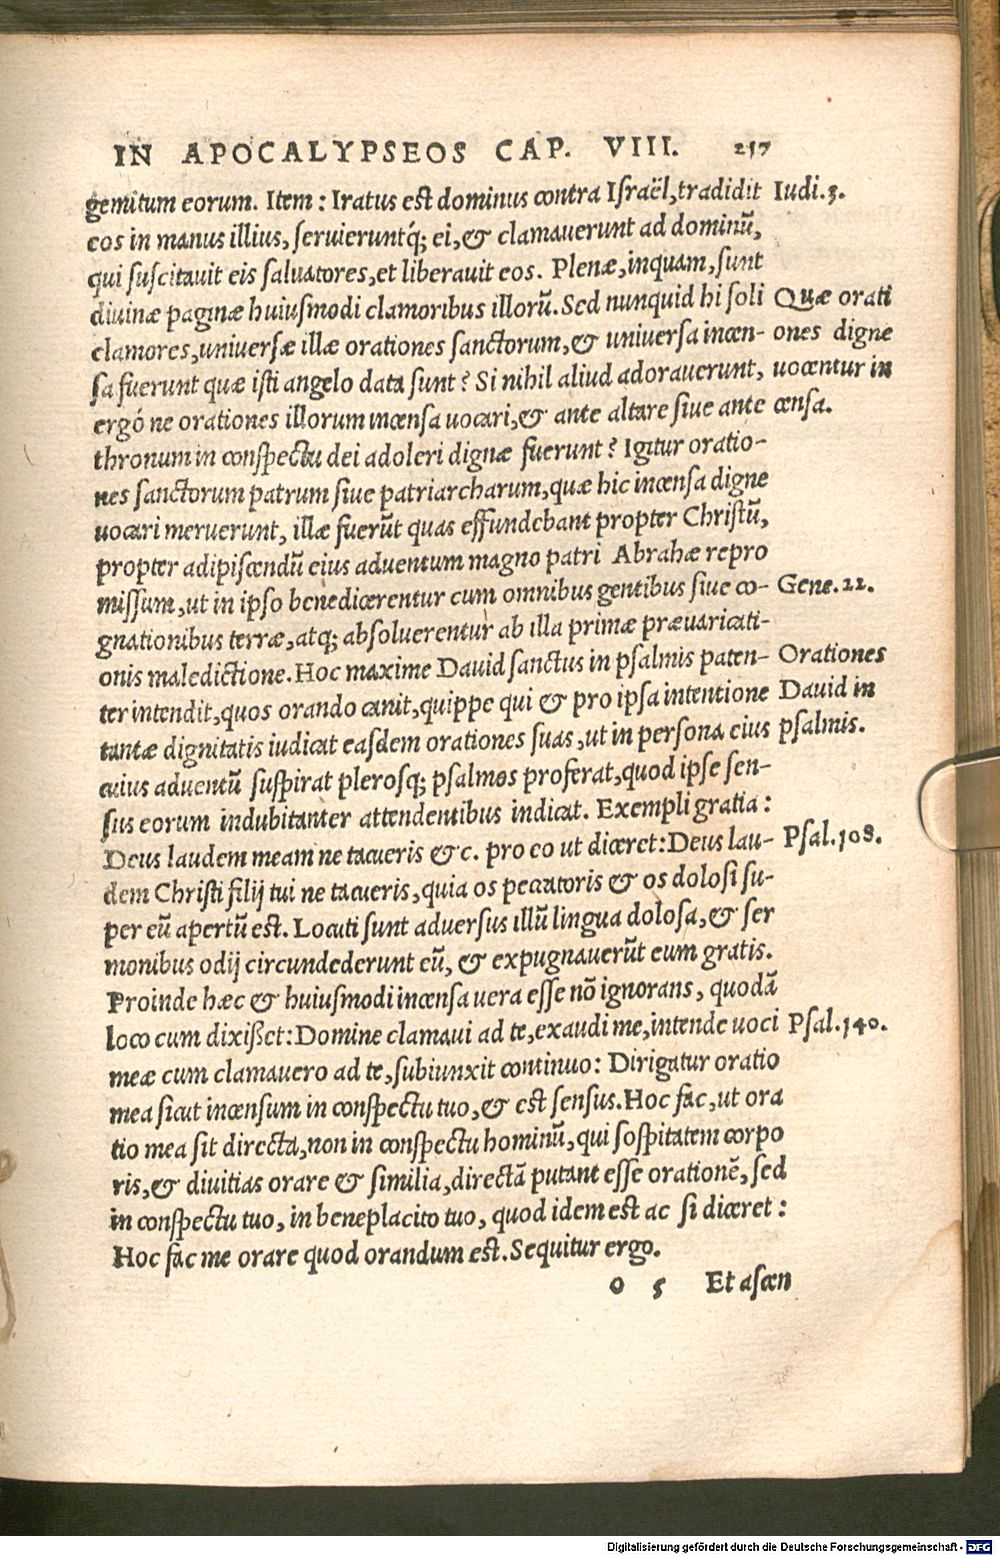 IN APOCALYPSEOS CAP. VIII. 217
gemitum eorum. Item: Iratus est dominus contra Israël, tradidit Iudi.3.
eos in manus illius, servieruntq́; ei, & clamaverunt ad dominũ,
qui suscitavit eis salvatores, et liberavit eos. Plenæ, inquam, sunt
divinæ paginæ huiusmodi clamoribus illorũ. Sed nunquid hi soli Quæ orati
clamores, universæ illæ orationes sanctorum, & universa incen- ones digne
sa fuerunt quæ isti angelo data sunt? Si nihil aliud adoraverunt, vocentur in
ergó ne orationes illorum incensa vocari, & ante altare sive ante censa.
thronum in conspectu dei adoleri dignæ fuerunt? Igitur oratio-
nes sanctorum patrum sive patriarcharum, quæ hic incensa digne
vocari meruerunt, illæ fuerũt quas effundebant propter Christũ,
propter adipiscendũ eius adventum magno patri Abrahæ repro
missum, ut in ipso benedicerentur cum omnibus gentibus sive co- Gene.22.
gnationibus terræ, atq; absolverentur ab illa primæ prævaricati-
onis maledictione. Hoc maxime David sanctus in psalmis paten- Orationes
ter intendit, quos orando canit, quippe qui & pro ipsa intentione David in
tantæ dignitatis iudicat easdem orationes suas, ut in persona eius psalmis.
cuius adventũ suspirat plerosq; psalmos proferat, quod ipse sen-
sus eorum indubitanter attendentibus indicat. Exempli gratia:
Deus laudem meam ne tacueris &c. pro eo ut diceret: Deus lau- Psal.108.
dem Christi filij tui ne tacueris, quia os peccatoris & os dolosi su-
per eũ apertũ est. Locuti sunt adversus illũ lingua dolosa, & ser
monibus odij circundederunt eũ, & expugnaverũt eum gratis.
Proinde hæc & huiusmodi incensa vera esse nõ ignorans, quodã
loco cum dixißet: Domine clamavi ad te, exaudi me, intende voci Psal.140.
meæ cum clamavero ad te, subiunxit continuo: Dirigatur oratio
mea sicut incensum in conspectu tuo, & est sensus. Hoc fac, ut ora
tio mea sit directa, non in conspectu hominũ, qui sospitatem corpo
ris, & divitias orare & similia, directã putant esse orationẽ, sed
in conspectu tuo, in beneplacito tuo, quod idem est ac si diceret:
Hoc fac me orare quod orandum est. Sequitur ergo.
o 5 Et ascen
Digitalisierung gefördert durch die Deutsche Forschungsgemeinschaft - DFG